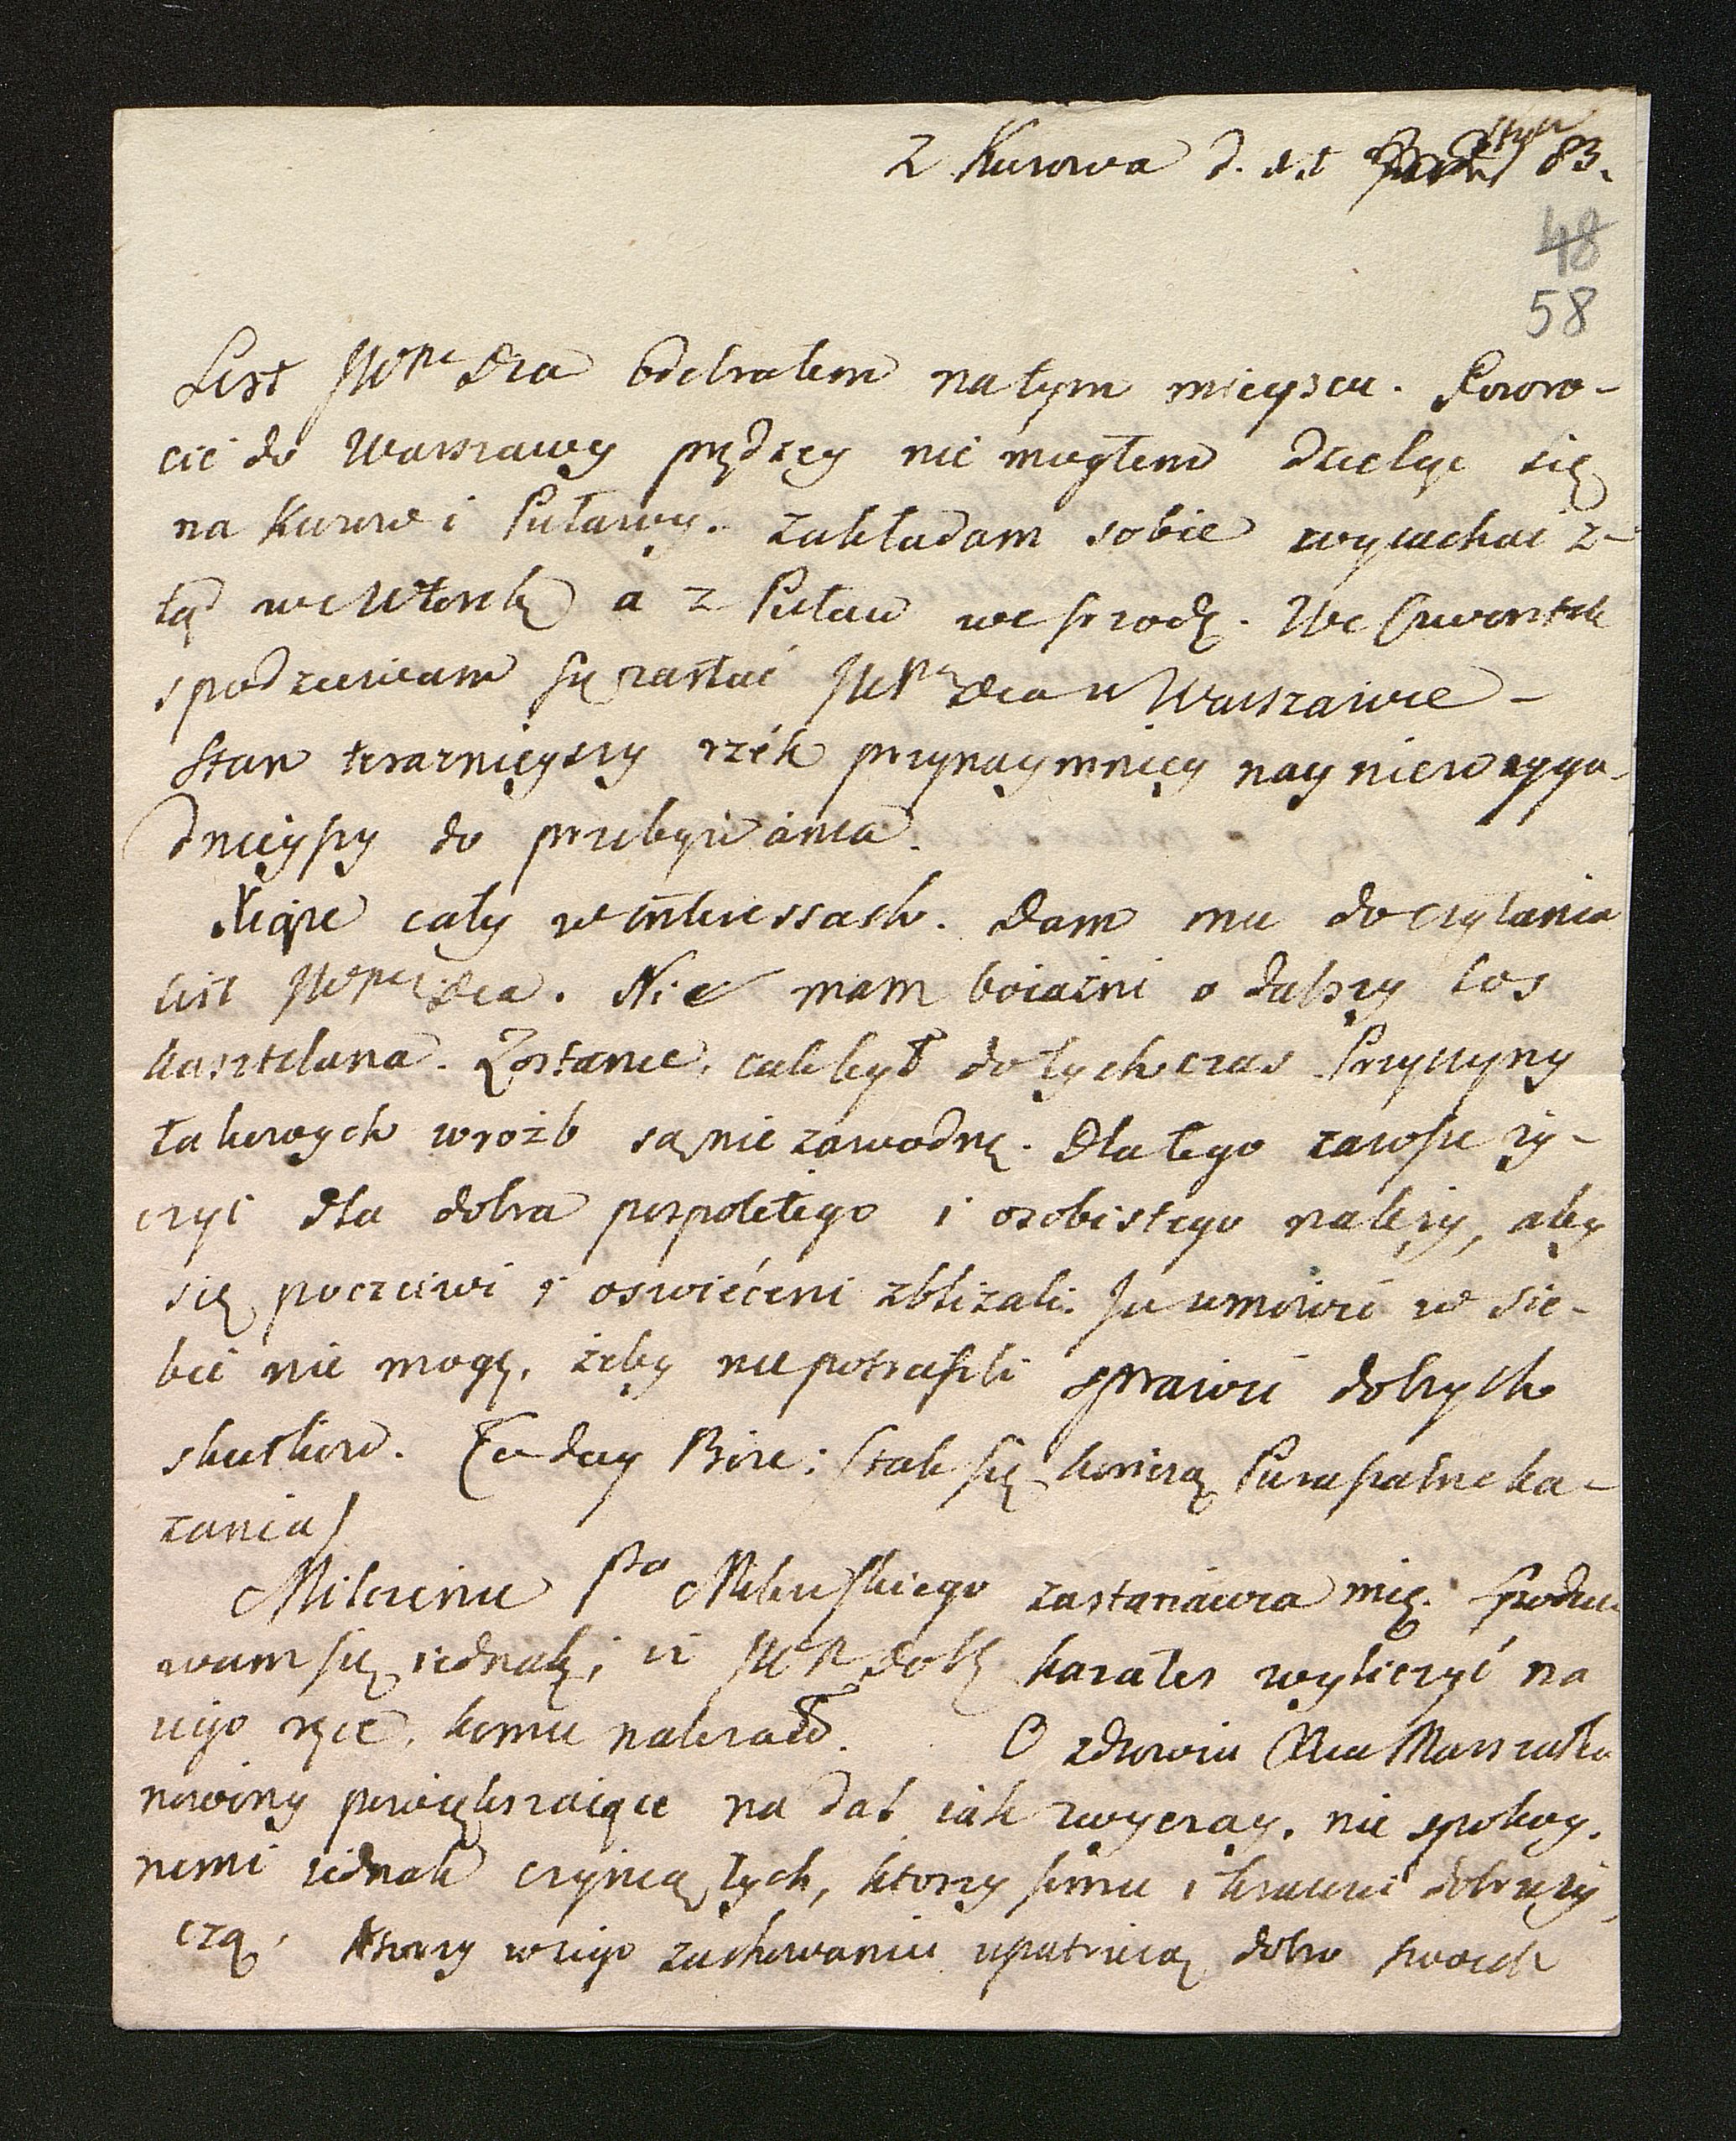 Z Kurowa d. 83.
48
58
List WPna Dza odebrałem na tym mieyscu. Powro-
cić do Warszawy prędzey nie mogłem dzieląc się
na Kurow i Puławy. zakładam sobie wyiachać z-
tąd we Wtorek a z Puław we srzodę. We Czwartek
spodziewam się zastać WPna Dza w Warszawie -
Stan teraznieyszy rzék przynaymniey nayniewygo-
dnieyszy do przebywania.
Xiąże cały w interessach. Dam mu do czytania
list WPna Dza. Nie mam boiaźni o dalszy los
kasztelana. Zostanie, iak był do tych czas. Przyczyny
takowych wróżb są nie zawodne. Dla tego zawsze ży-
czyć dla dobra pospolitego i osobistego należy, aby
się poczciwi i oswiéceni zbliżali. Ja umowić w sie-
bie nie mogę, żeby nie potrafili sprawić dobrych
skutkow. Co day Boże: (tak się kończą Parafialne ka-
zania)
Milczenie Pa zastanawia mię. Spodzie-
wam się iednak, iż WPn Dobr. kazałeś wyliczyć na
iego ręce, komu należało. O zdrowiu Xcia Marszałka
nowiny powiększaiące na dal iak zwyczay, nie spokoy-
nemi iednak czynią tych, ktorzy iemu i kraiowi dobrze ży-
czą, ktorzy w iego zachowaniu upatruią dobro swoich